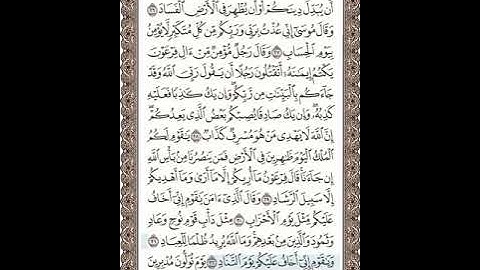 أَن يُبَدِّلَ دِينَكُمْ أَوْ أَن يُظْهِرَ فِي ٱلْأَرْضِ ٱلْفَسَادَ ۝٢٦
وَقَالَ مُوسَىٰٓ إِنِّي عُذْتُ بِرَبِّي وَرَبِّكُم مِّن كُلِّ مُتَكَبِّرٍ لَّا يُؤْمِنُ
بِيَوْمِ ٱلْحِسَابِ ۝٢٧ وَقَالَ رَجُلٌ مُّؤْمِنٌ مِّنْ ءَالِ فِرْعَوْنَ
يَكْتُمُ إِيمَٰنَهُۥٓ أَتَقْتُلُونَ رَجُلًا أَن يَقُولَ رَبِّيَ ٱللَّهُ وَقَدْ
جَآءَكُم بِٱلْبَيِّنَٰتِ مِن رَّبِّكُمْ ۖ وَإِن يَكُ كَٰذِبًا فَعَلَيْهِ
كَذِبُهُۥ ۖ وَإِن يَكُ صَادِقًا يُصِبْكُم بَعْضُ ٱلَّذِي يَعِدُكُمْ ۖ
إِنَّ ٱللَّهَ لَا يَهْدِي مَنْ هُوَ مُسْرِفٌ كَذَّابٌ ۝٢٨ يَٰقَوْمِ لَكُمُ
ٱلْمُلْكُ ٱلْيَوْمَ ظَٰهِرِينَ فِي ٱلْأَرْضِ فَمَن يَنصُرُنَا مِنۢ بَأْسِ ٱللَّهِ
إِن جَآءَنَا ۚ قَالَ فِرْعَوْنُ مَآ أُرِيكُمْ إِلَّا مَآ أَرَىٰ وَمَآ أَهْدِيكُمْ
إِلَّا سَبِيلَ ٱلرَّشَادِ ۝٢٩ وَقَالَ ٱلَّذِيٓ ءَامَنَ يَٰقَوْمِ إِنِّيٓ أَخَافُ
عَلَيْكُم مِّثْلَ يَوْمِ ٱلْأَحْزَابِ ۝٣٠ مِثْلَ دَأْبِ قَوْمِ نُوحٍ وَعَادٍ
وَثَمُودَ وَٱلَّذِينَ مِنۢ بَعْدِهِمْ ۚ وَمَا ٱللَّهُ يُرِيدُ ظُلْمًا لِّلْعِبَادِ ۝٣١
وَيَٰقَوْمِ إِنِّيٓ أَخَافُ عَلَيْكُمْ يَوْمَ ٱلتَّنَادِ ۝٣٢ يَوْمَ تُوَلُّونَ مُدْبِرِينَ